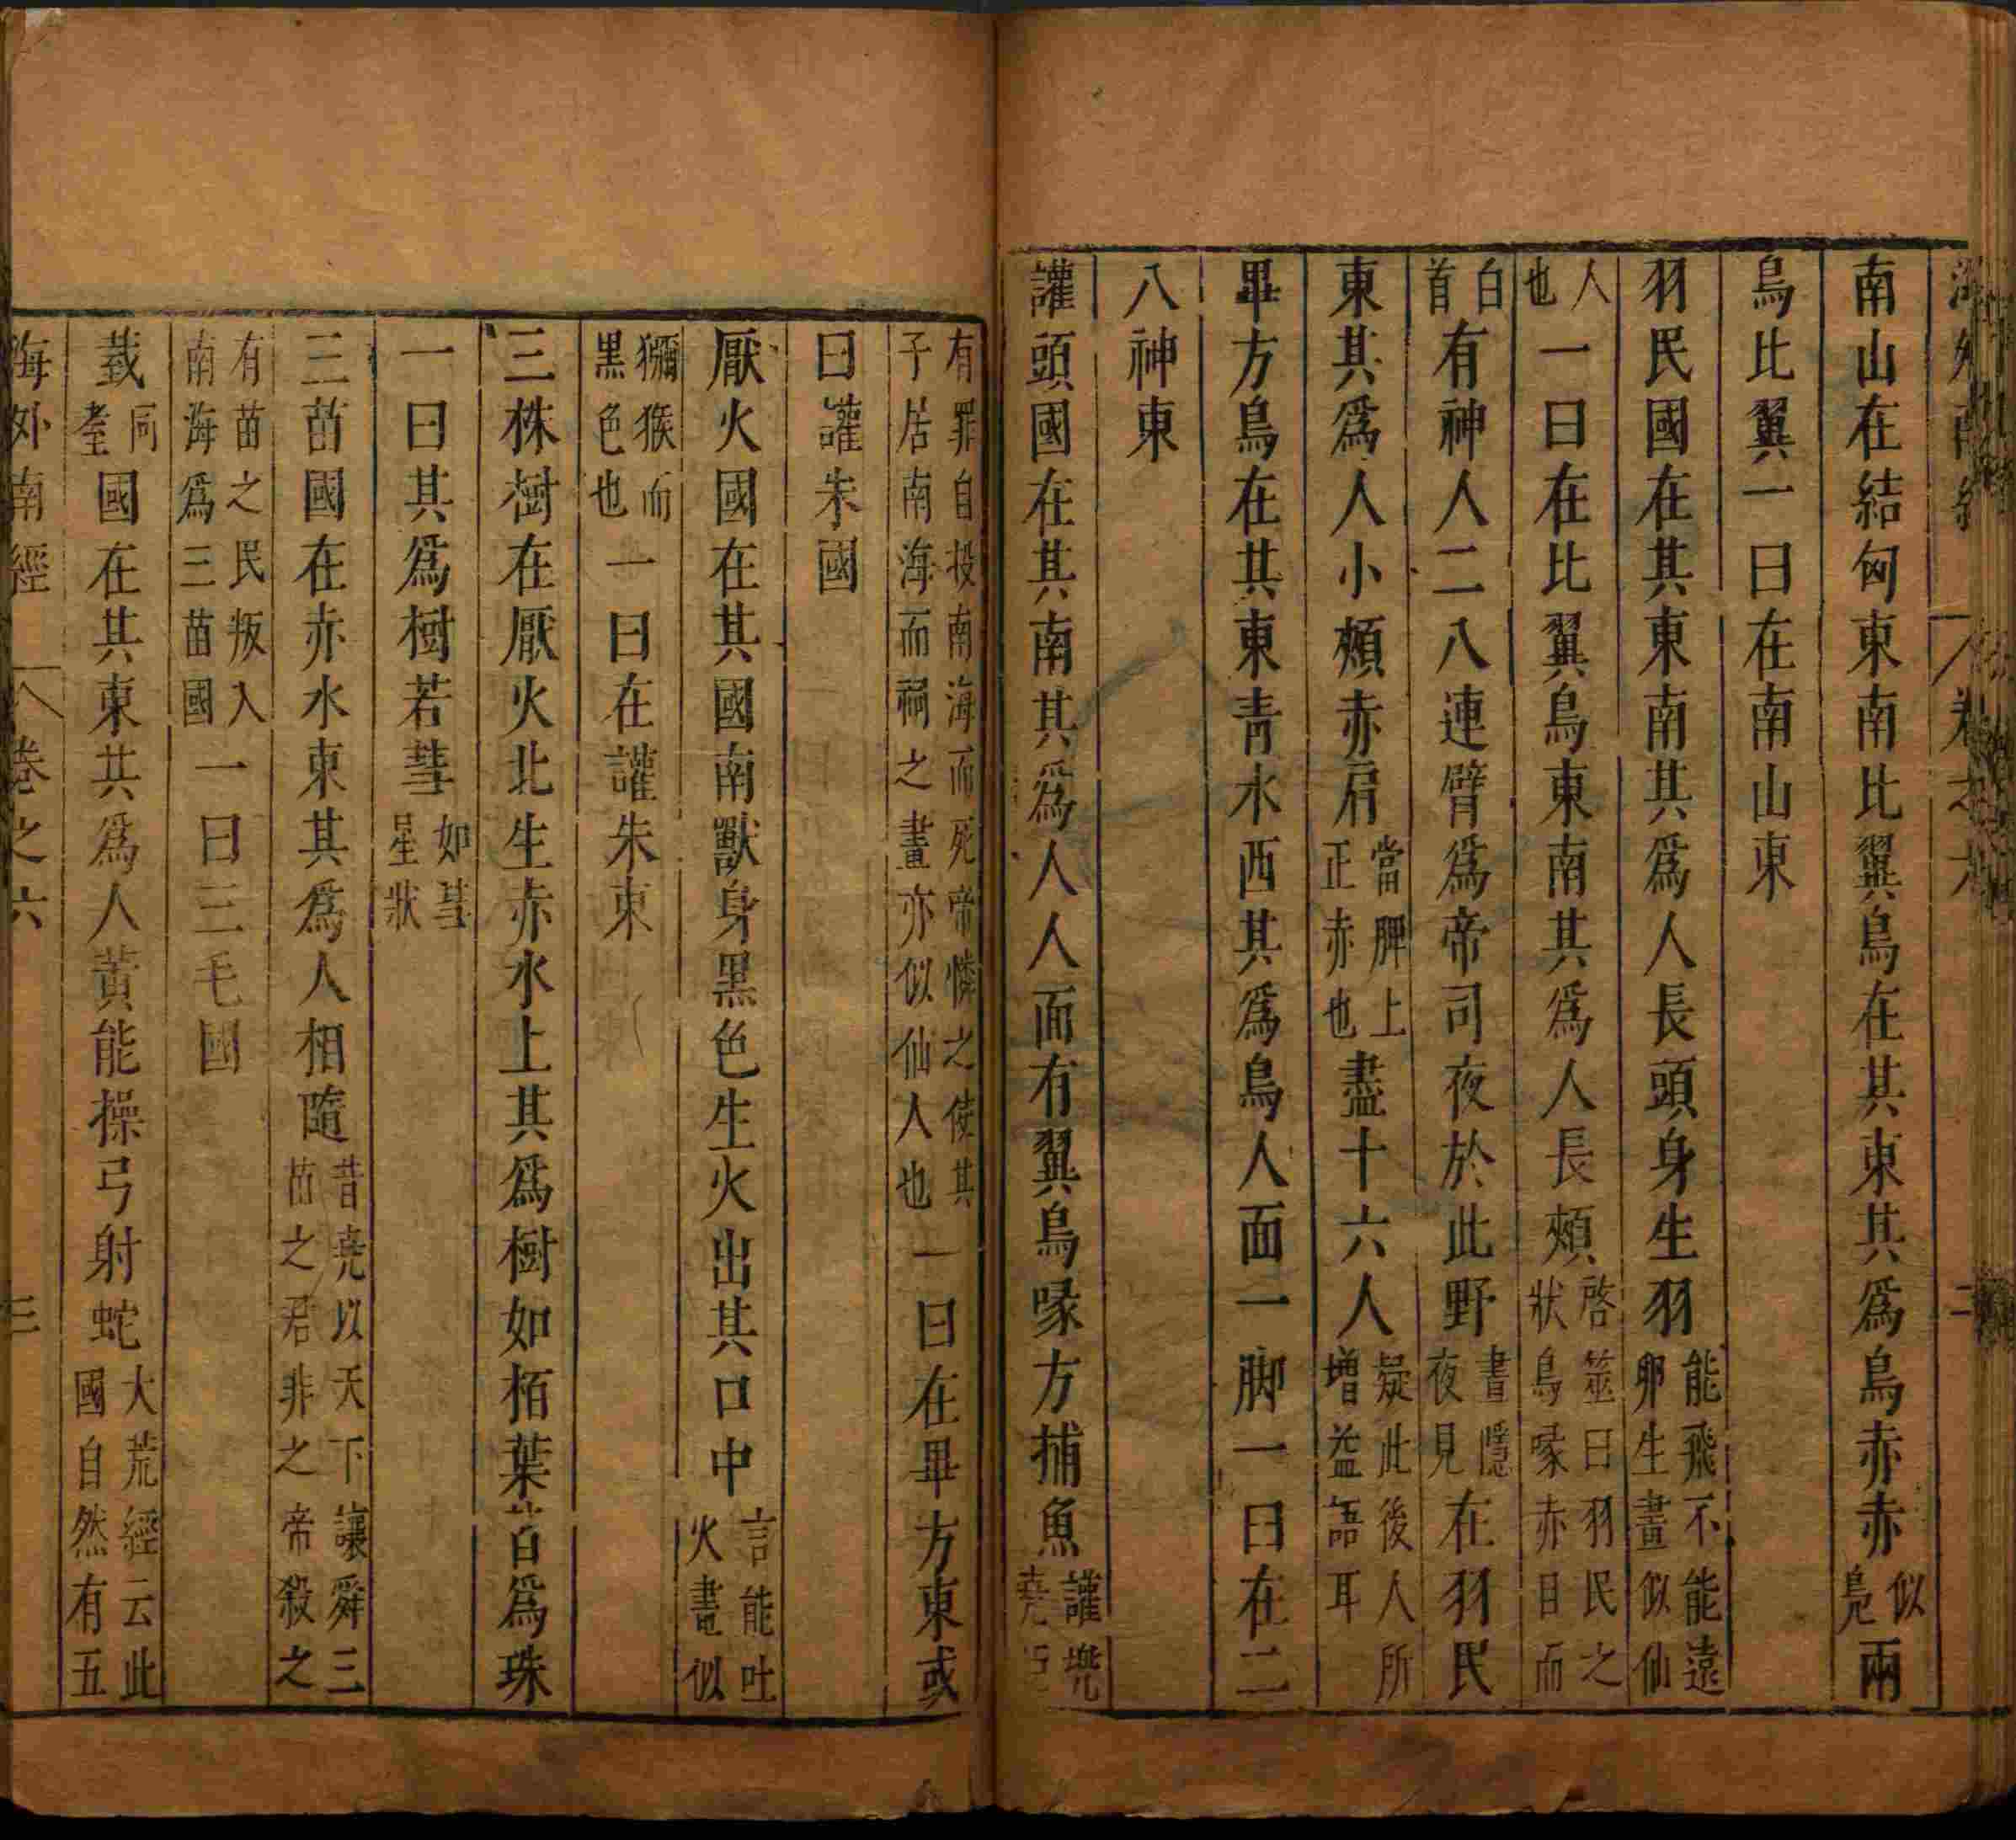 南山在結匈東南比翼鳥在其東其爲鳥赤赤似鳧兩
鳥比翼一曰在南山東
羽民國在其東南其爲人長頭身生羽能飛不能遠卵生畫似仙
人也一曰在比翼鳥東南其爲人長頰啓筮曰羽民之狀鳥喙赤目而
白首有神人二八連臂爲帝司夜於此野晝隱夜見在羽民
東其爲人小頰赤肩當脾上正赤也盡十六人疑此後人所增益語耳
畢方鳥在其東青水西其爲鳥人面一脚一曰在二
八神東
讙頭國在其南其爲人人面有翼鳥喙方捕魚讙兜堯臣
有罪自投南海而死帝憐之使其子居南海而祠之畫亦似仙人也一曰在畢方東或
曰讙朱國
厭火國在其國南獸身黑色生火出其口中言能吐火畫似
獼猴而黑色也一曰在讙朱東
三株樹在厭火北生赤水上其爲樹如栢葉皆爲珠
一曰其爲樹若彗如彗星狀
三苗國在赤水東其爲人相隨昔堯以天下讓舜三苗之君非之帝殺之
有苗之民叛入南海爲三苗國一曰三毛國
臷國在其東其爲人黃能操弓射蛇大荒經云此國自然有五
海外南經 卷之六 三